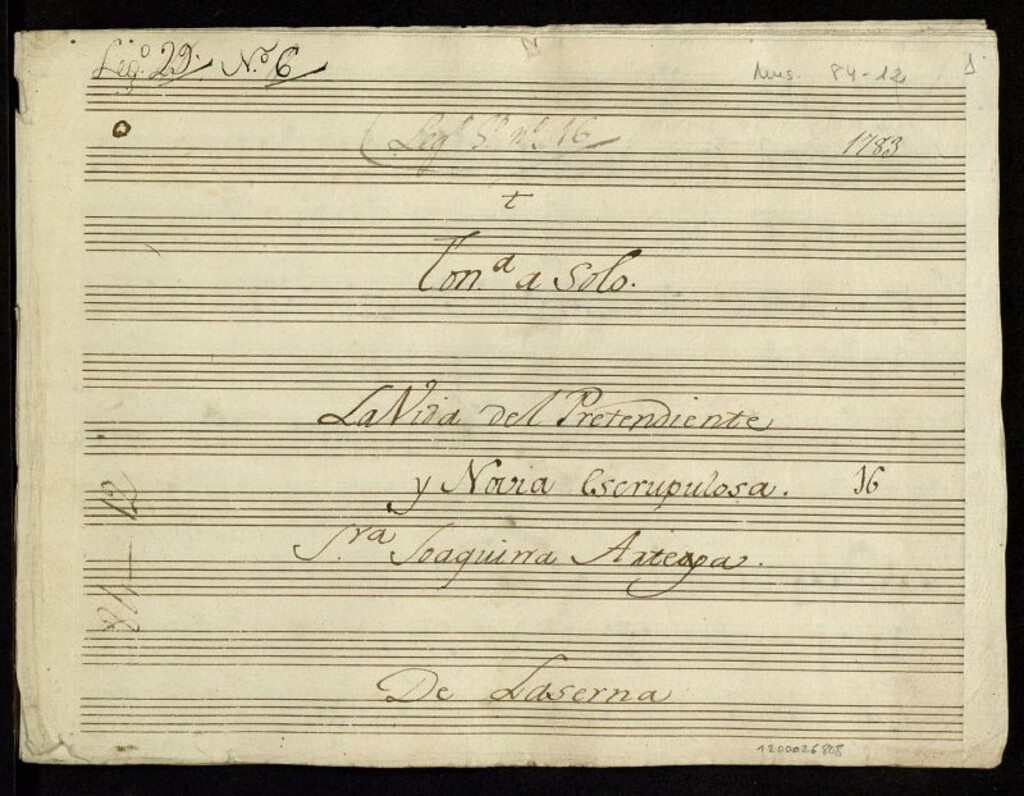 Leg.º 29. N.º 6
Mus. 84-12
1
(Leg.º 5.º n.º 16
1783
t
Ton.ª a Solo.
La Vida del Pretendiente
y Novia Escrupulosa. 16
S.ra Joaquina Arteaga.
De Laserna
1200026808